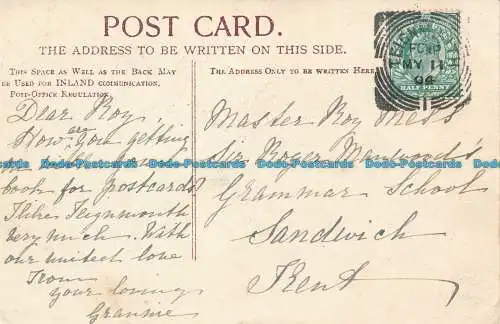 POST CARD.
THE ADDRESS TO BE WRITTEN ON THIS SIDE.
THIS SPACE AS WELL AS THE BACK MAY
BE USED FOR INLAND COMMUNICATION.
POST-OFFICE REGULATION.
THE ADDRESS ONLY TO BE WRITTEN HERE
MY 11
04
HALF PENNY
Dear Roy,
How are you getting
book for postcards
I like Teignmouth
very much. With
our united love
From
your loving
Grannie
Master Roy
Sir Roger Manwood's
Grammar School
Sandwich
Kent
Dodo-Postcards Dodo-Postcards Dodo-Postcards Dodo-Postcards